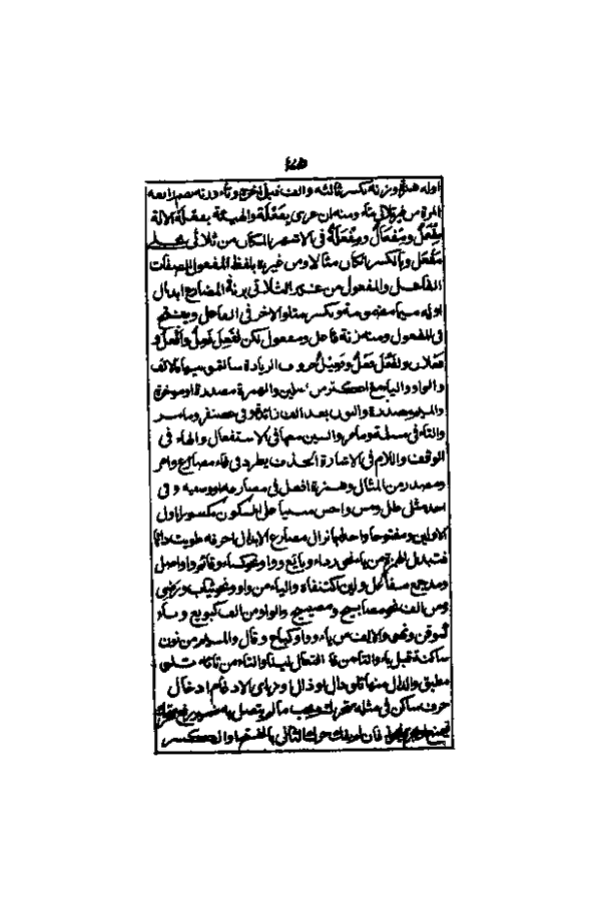 اوله همزا وبزنة بكسر ثالثه والف قبل اخره وتاء وزنه بضم رابعه
المرة من غير ثلاثي بتاء ومنه ان عرى بفَعْلَة والهيئة بفعلة الآلة
مِفْعَلٌ ومِفْعَالٌ ومِفْعَلَةٌ في الاشهر المكان من ثلاثي على
مَفْعَل وبالكسر ان كان مثالا ومن غيره بلفظ المفعول الصفات
الفاعل والمفعول من غير الثلاثي بزنة المضارع ابدال
اوله ميما مضمومة وبكسر متلو الاخر في الفاعل ويفتح
في المفعول ومنه زنة فاعل ومفعول لكن لفَعِلَ فَعِلٌ وأفْعَلُ و
فعلان ولفَعُلَ فَعْلٌ وفَعِيْلٌ حروف الزيادة سألتمونيها فالالف
والواو والياء مع اكثر من اصلين والهمزة مصدرة او مؤخرة
والميم مصدرة والنون بعد الف زائدة وفي غضنفر وما مر
والتاء في مسلمة وما مر والسين معها في الاستفعال والهاء في
الوقف واللام في الاشارة الحذف يطرد في فاء مضارع وامر
ومصدر من المثال وهمزة افعل في مضارعه ووصفيه وفي
احد مثلي ظل ومس واحس مبنيا على السكون مكسورا اول
الاولين ومفتوحا
فتبدل الهمزة من ياء نحو رداء وبائع وواو نحو كساء وقائم واواصل
ومد جمع مفاعل ولين اكتنفاه والياء من واو نحو ثياب ورضي
ومن الف نحو مصابيح ومصيبيح والواو من الف كبويع وياء
كموقن ونهو والالف من ياء وواو كباع وقال والميم من نون
ساكنة قبل باء والتاء من فاء افتعال لينا والطاء من تائه تلو
مطبق والدال منها تلو دال او ذال او زاي الادغام ادخال
حرف ساكن في مثله متحرك ويجب ما لم يتصل به ضمير رفع متحرك
فيمتنع فان لم يفك حرك الثاني بالفتح او الكسر